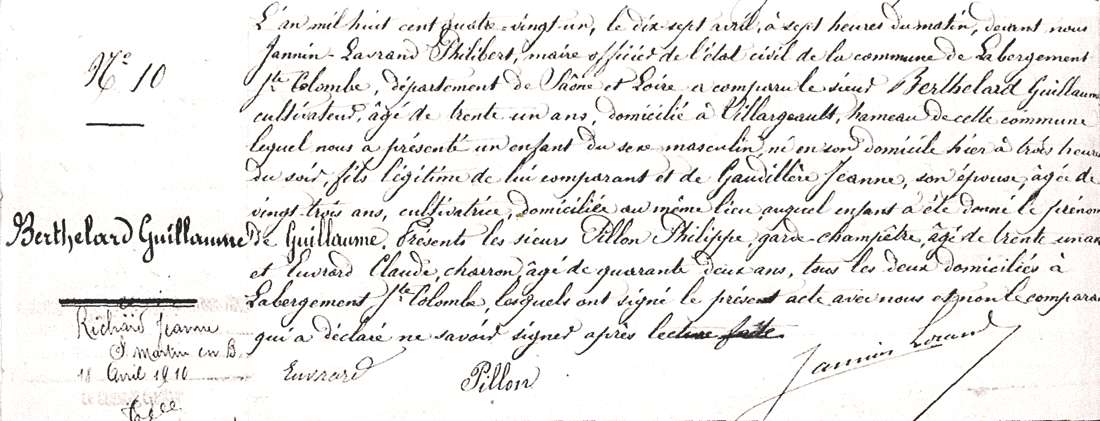 N° 10
Berthelard Guillaume
Richard Jeanne
St Martin en B.
18 Avril 1910
L'an mil huit cent quatre-vingt-un, le dix-sept avril, à sept heures du matin, devant nous
Jannin-Lavrand Philibert, maire officier de l'état civil de la commune de Labergement
Ste Colombe, département de Saône et Loire a comparu le sieur Berthelard Guillaume
cultivateur, âgé de trente un ans, domicilié à Villargeault, hameau de cette commune
lequel nous a présenté un enfant du sexe masculin, né en son domicile hier à trois heures
du soir, fils légitime de lui comparant et de Gaudillère Jeanne, son épouse, âgée de
vingt trois ans, cultivatrice, domiciliée au même lieu auquel enfant a été donné le prénom
de Guillaume. Présents les sieurs Pillon Philippe, garde-champêtre, âgé de trente un ans
et Euvrard Claude, charron, âgé de quarante deux ans, tous les deux domiciliés à
Labergement Ste Colombe, lesquels ont signé le présent acte avec nous et non le comparant
qui a déclaré ne savoir signer après lecture faite
Euvrard Pillon Jannin Lavrand